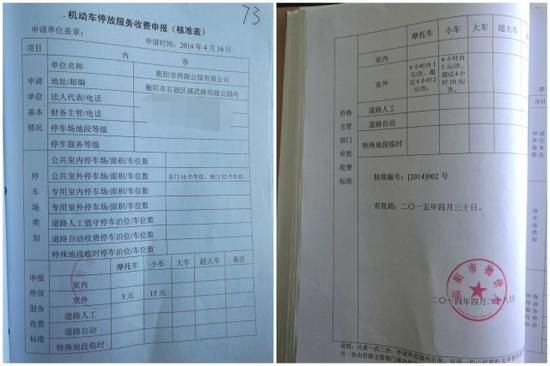 73
机动车停放服务收费申报（核准表）
申请单位盖章：
申请时间：2014年4月16日
项目 内 容
申请单位基本情况
单位名称 衡阳市西湖公园有限公司
地址/邮编 衡阳市石鼓区演武路西湖公园内
法人代表/电话
财务主管/电话
停车场地段等级
停车服务等级
停车场类别
公共室内停车场/面积/车位数
公共室外停车场/面积/车位数
专用室内停车场/面积/车位数
专用室外停车场/面积/车位数
道路人工值守停车泊位/车位数
道路自动收费停车泊位/车位数
特殊地段临时停车泊位/车位数
申报停放服务收费标准
摩托车 小车 大车 超大车 备注
室内
室外 3元 15元
道路人工
道路自动
特殊地段临时
价格主管部门审批收费标准
摩托车 小车 大车 超大车
室内
室外
4小时内1元/次。超过4小时2元/次。
4小时内5元/次。超过4小时10元/次。
道路人工
道路自动
特殊地段临时
核准编号：[2014]002 号
有效期：二〇一五年四月三十日。
衡阳市物价局